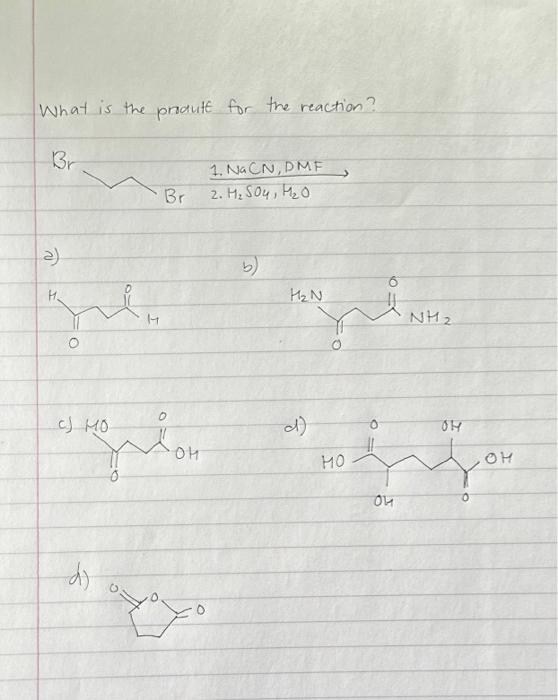 What is the produtt for the reaction?
Br
Br
1. NaCN, DMF
2. H2SO4, H2O
a)
H
O
O
H
b)
H2N
O
O
NH2
c) HO
O
O
OH
d)
HO
O
OH
OH
O
OH
d)
O
O
O